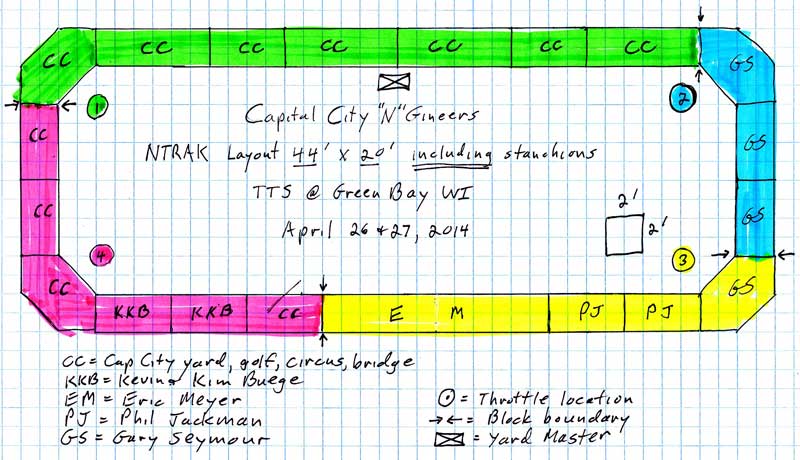 CC CC CC CC CC CC CC GS
1 2
CC GS
Capital City "N"Gineers
NTRAK Layout 44' x 20' including stanchions
TTS @ Green Bay WI
April 26 & 27, 2014
2'
2'
CC GS
4 3
CC GS
KKB KKB CC E M PJ PJ
CC = Cap City yard, golf, circus, bridge
KKB = Kevin & Kim Buege
EM = Eric Meyer
PJ = Phil Jackman
GS = Gary Seymour
= Throttle location
= Block boundary
= Yard Master